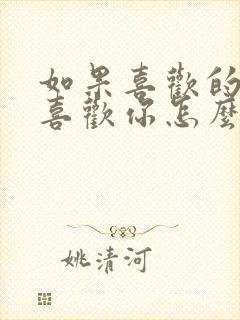 如果喜歡的
喜歡你怎麼
姚清河